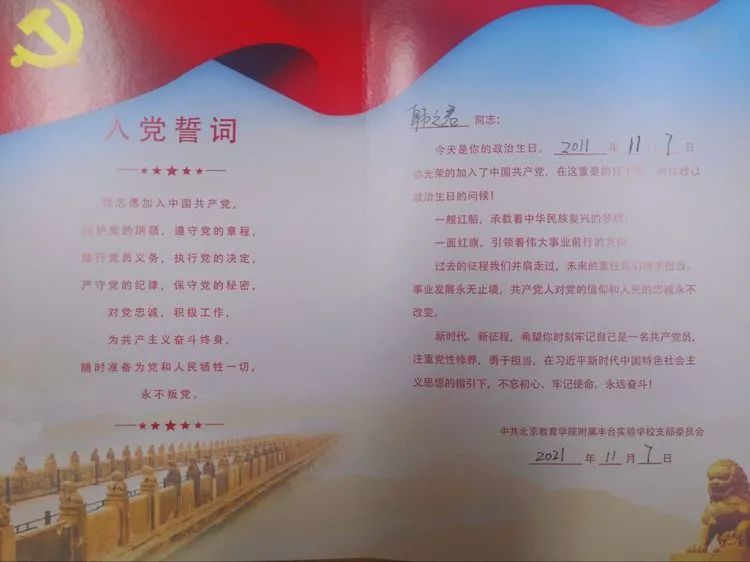 入党誓词
我志愿加入中国共产党，
拥护党的纲领，遵守党的章程，
履行党员义务，执行党的决定，
严守党的纪律，保守党的秘密，
对党忠诚，积极工作，
为共产主义奋斗终身，
随时准备为党和人民牺牲一切，
永不叛党。
韩之君 同志：
今天是你的政治生日。2011 年 11 月 7 日
你光荣的加入了中国共产党，在这重要的日子里，向你致以
政治生日的问候！
一艘红船，承载着中华民族复兴的梦想；
一面红旗，引领着伟大事业前行的方向。
过去的征程我们并肩走过，未来的重任我们携手担当。
事业发展永无止境，共产党人对党的信仰和人民的忠诚永不
改变。
新时代、新征程，希望你时刻牢记自己是一名共产党员，
注重党性修养，勇于担当，在习近平新时代中国特色社会主
义思想的指引下，不忘初心、牢记使命、永远奋斗！
中共北京教育学院附属丰台实验学校支部委员会
2021 年 11 月 7 日